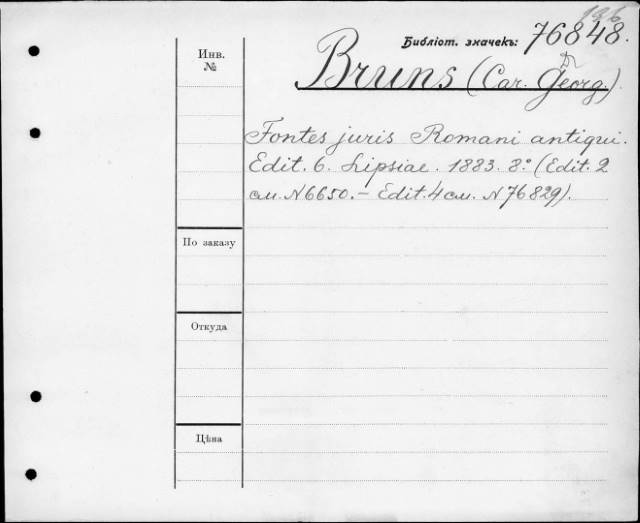 196
Библіот. значекъ: 76848.
Инв.
№
Bruns (Car. Georg.)
Fontes juris Romani antiqui.
Edit. 6. Lipsiae. 1883. 8º (Edit. 2
см. N6650. — Edit. 4 см. N76829).
По заказу
Откуда
Цѣна